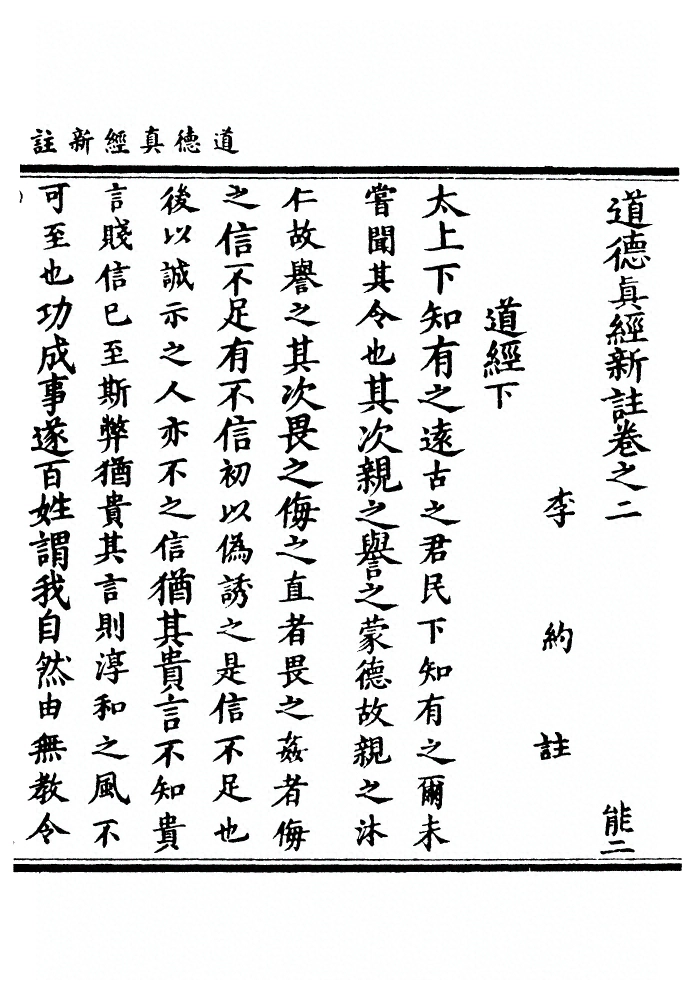 道德真經新註
道德眞經新註卷之二　能二
李約註
道經下
太上下知有之遠古之君民下知有之爾未
嘗聞其令也其次親之譽之蒙德故親之沐
仁故譽之其次畏之侮之直者畏之姦者侮
之信不足有不信初以偽誘之是信不足也
後以誠示之人亦不之信猶其貴言不知貴
言賤信巳至斯弊猶貴其言則淳和之風不
可至也功成事遂百姓謂我自然由無教令